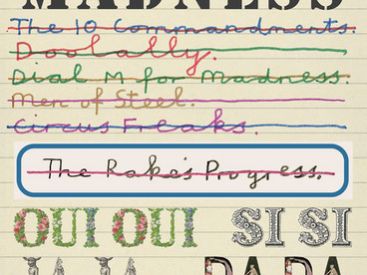 MADNESS
The 10 Commandments.
Doolally.
Dial M for Madness.
Men of Steel.
Circus Freaks.
The Rake's Progress.
OUI OUI SI SI
JA JA DA DA